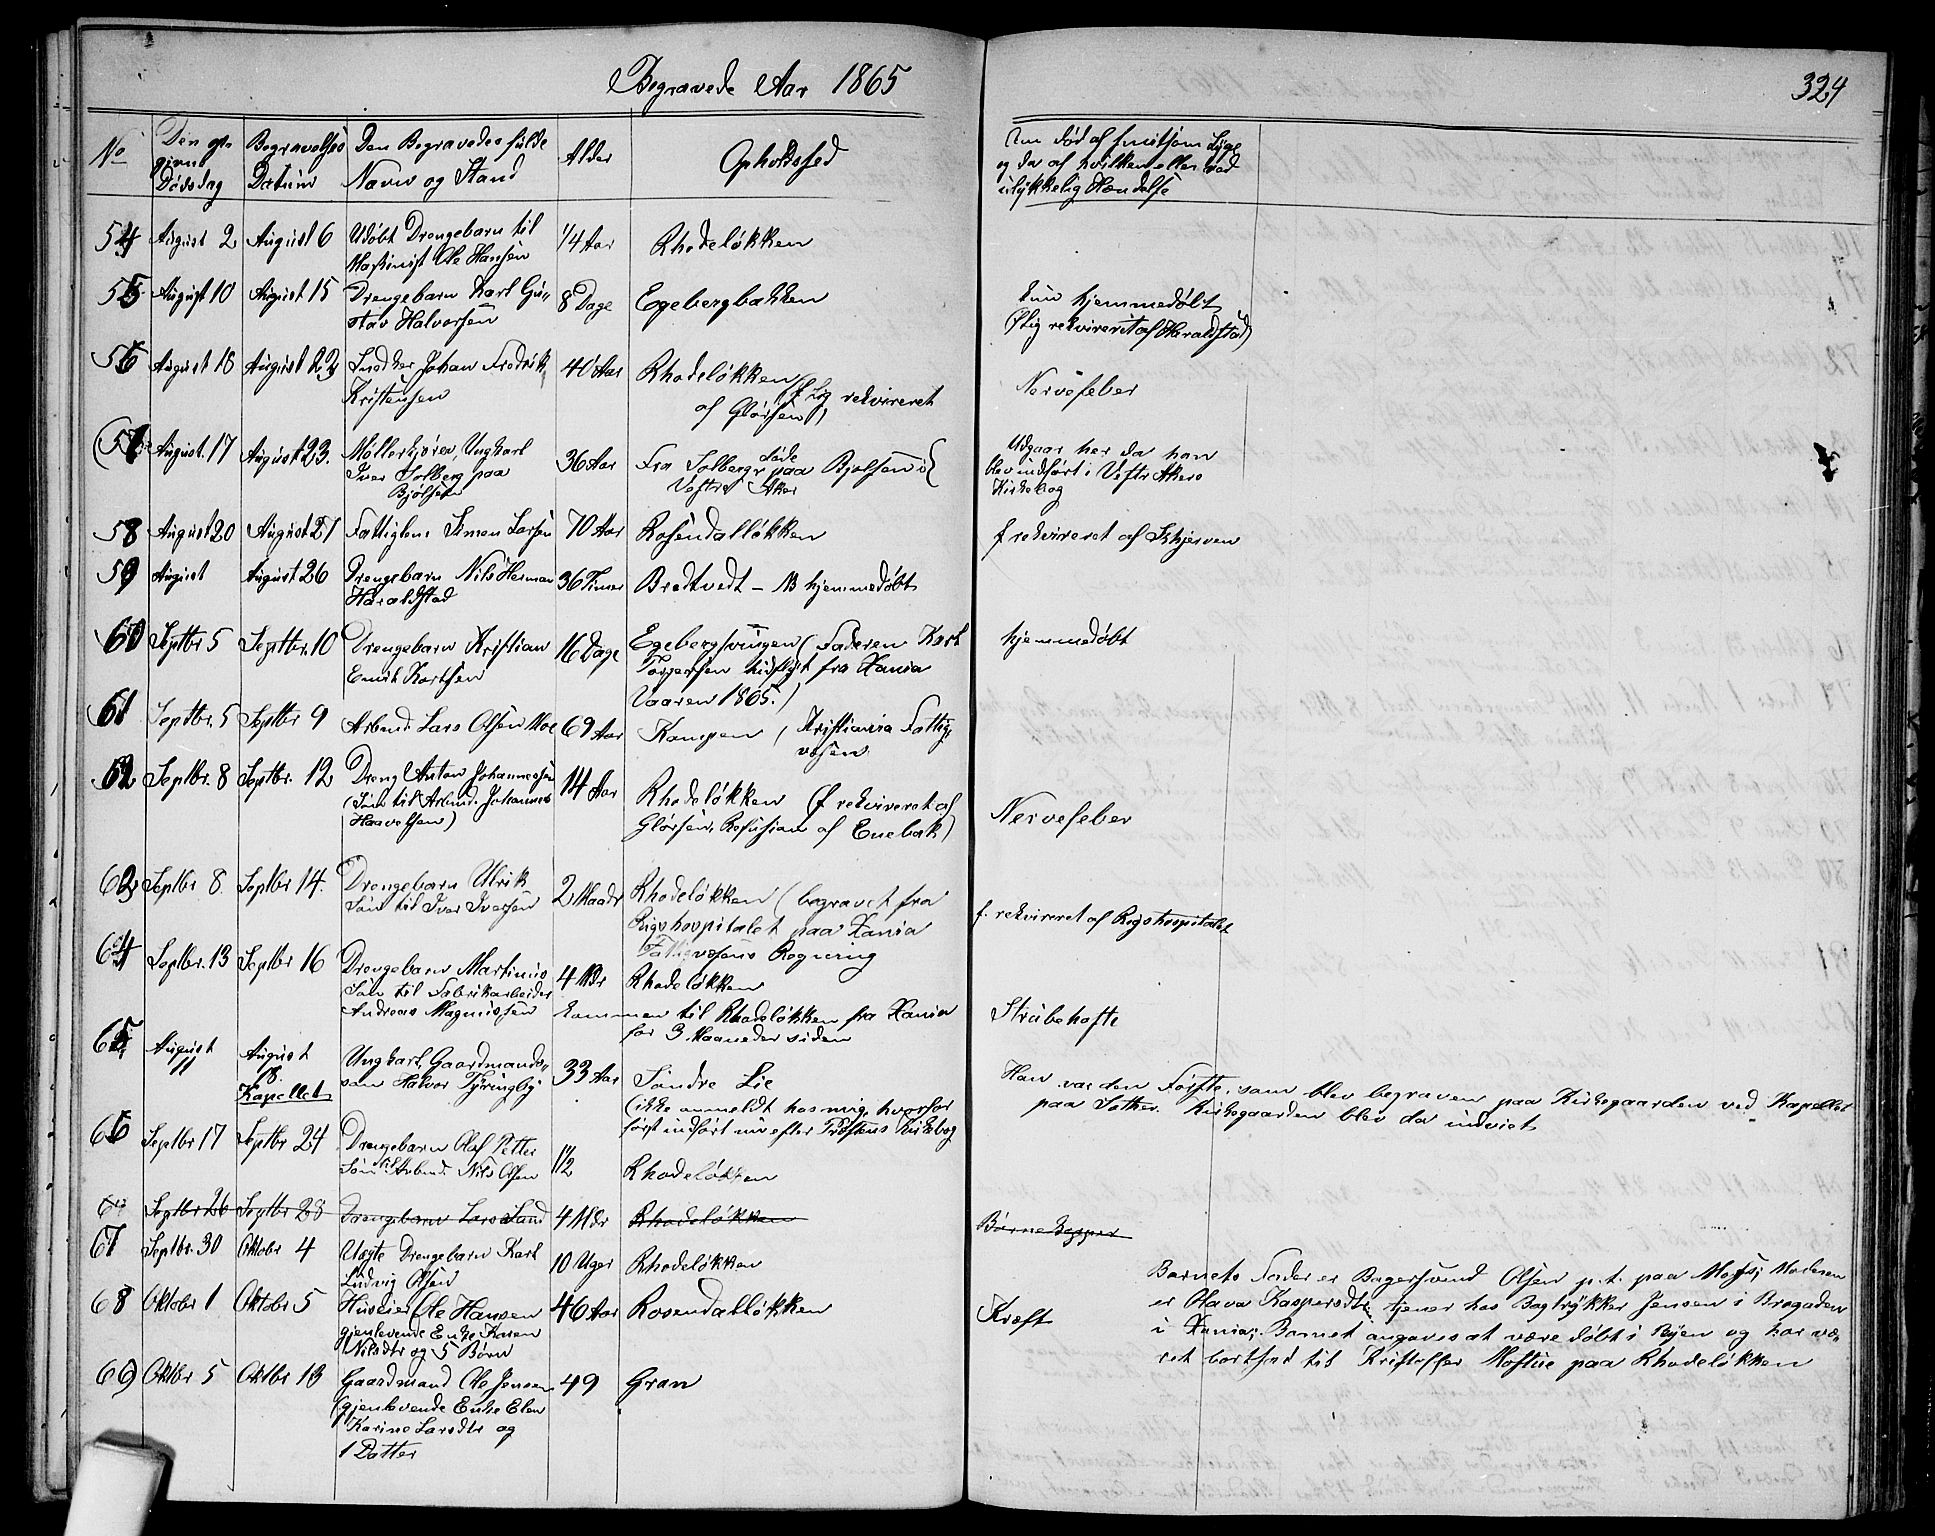 Begravede Aar 1865
324
No
Den op-
givne
Dødsdag
Begravelses
Datum
Den Begravedes fulde
Navn og Stand
Alder
Opholdssted
Om død af smitsom Syge
og da af hvilken eller ved
ulykkelig Hændelse
54 August 2 August 6 Udøbt Drengebarn til 1/4 Aar Rhodeløkken
Maskinist Ole Hansen
55 August 10 August 15 Drengebarn Karl Gu- 8 Dage Egebergbakken
stav Halvorsen
hjemmedøbt
rekvireret af Heraldstad)
56 August 18 August 22 Snedker Johan Fredrik 40 Aar Rhodeløkken (f Lig rekvireret
Kristensen af Glørsen)
Nervefeber
(57 August 17 August 23. Møllerkjører, Ungkarl 36 Aar Fra Solberg paa Bjølsen i
Iver Solberg paa Vestre Aker
Bjølsen
Udgaar her da han
blev indført i Vestre Akers
Kirkebog
58 August 20 August 27 Fattiglem Simen Larsen 70 Aar Rosendalløkken f rekvireret af Skjerven
59 August August 26 Drengebarn Nils Herman 36 Timer Bredtvedt - NB hjemmedøbt
Haraldstad
60 Septbr 5 Septbr. 10 Drengebarn Kristian 16 Dage Egebergsvingen (Faderen Karl hjemmedøbt
Emil Karlsen Torgersen hidflyt fra Xania
Vaaren 1865.)
61 Septbr. 5 Septbr 9 Arbmd. Lars Olsen Moe 69 Aar Kampen (Kristiania Fattig-
væsen
62 Septbr. 8 Septbr. 12 Dreng Anton Johannessen 14 Aar Rhodeløkken (f rekvireret af
(Søn til Arbmd. Johannes Glørsen, Refusion af Enebak)
Haavelsen)
Nervefeber
63 Septbr 8. Septbr 14. Drengebarn Ulrik 2 Maadr Rhodeløkken (begravet fra
Søn til Iver Iversen Rigshospitalet paa Xania
Fattigvæsens Regning
f. rekvireret af Rigshospitalet
64 Septbr. 13 Septbr 16 Drengebarn Martinus 4 Mdr Rhodeløkken
Søn til Fabrikarbeider
Andreas Magnussen kommen til Rhodeløkken fra Xania
for 3 Maaneder siden
Strubehoste
65 August 11 August 18. Ungkarl, Gaardmands- 33 Aar Søndre Lie
Kapellet søn Halvor
(ikke anmeldt hos mig, hvorfor
først indført nu efter Præstens Kirkebog
Han var den Første, som blev begraven paa Kirkegaarden ved Kapellet
paa Kirkegaarden blev da indviet
66 Septbr 17 Septbr 24 Drengebarn Olaf Petter 1 1/2 Rhodeløkken
Søn til Arbmd. Nils Olsen
67 Septbr 26 Septbr 28 Drengebarn Lars Lund 4 Mdr Rhodeløkken Børnekopper
67 Septbr. 30 Oktobr 4 Uægte Drengebarn Karl 10 Uger Rhodeløkken
Ludvig Olsen
Barnets Fader er Bagersvend Olsen p. t. paa Moss; Moderen
er Olava Kaspersdtr, tjener hos Bogtrykker Jensen i Brogaden
i Xania; Barnet angaves at være døbt i Byen og har væ-
ret bortsat til Kristoffer Mostue paa Rhodeløkken
68 Oktobr 1 Oktobr 5 Huseier Ole Hansen 46 Aar Rosendalløkken Kræft
gjenlevende Enke Karen
Nilsdtr og 5 Børn
69 Oktbr 5 Oktbr 13 Gaardmand Ole Jensen 49 Gran
(gjenlevende Enke Elen
Karine Larsdtr og
1 Datter